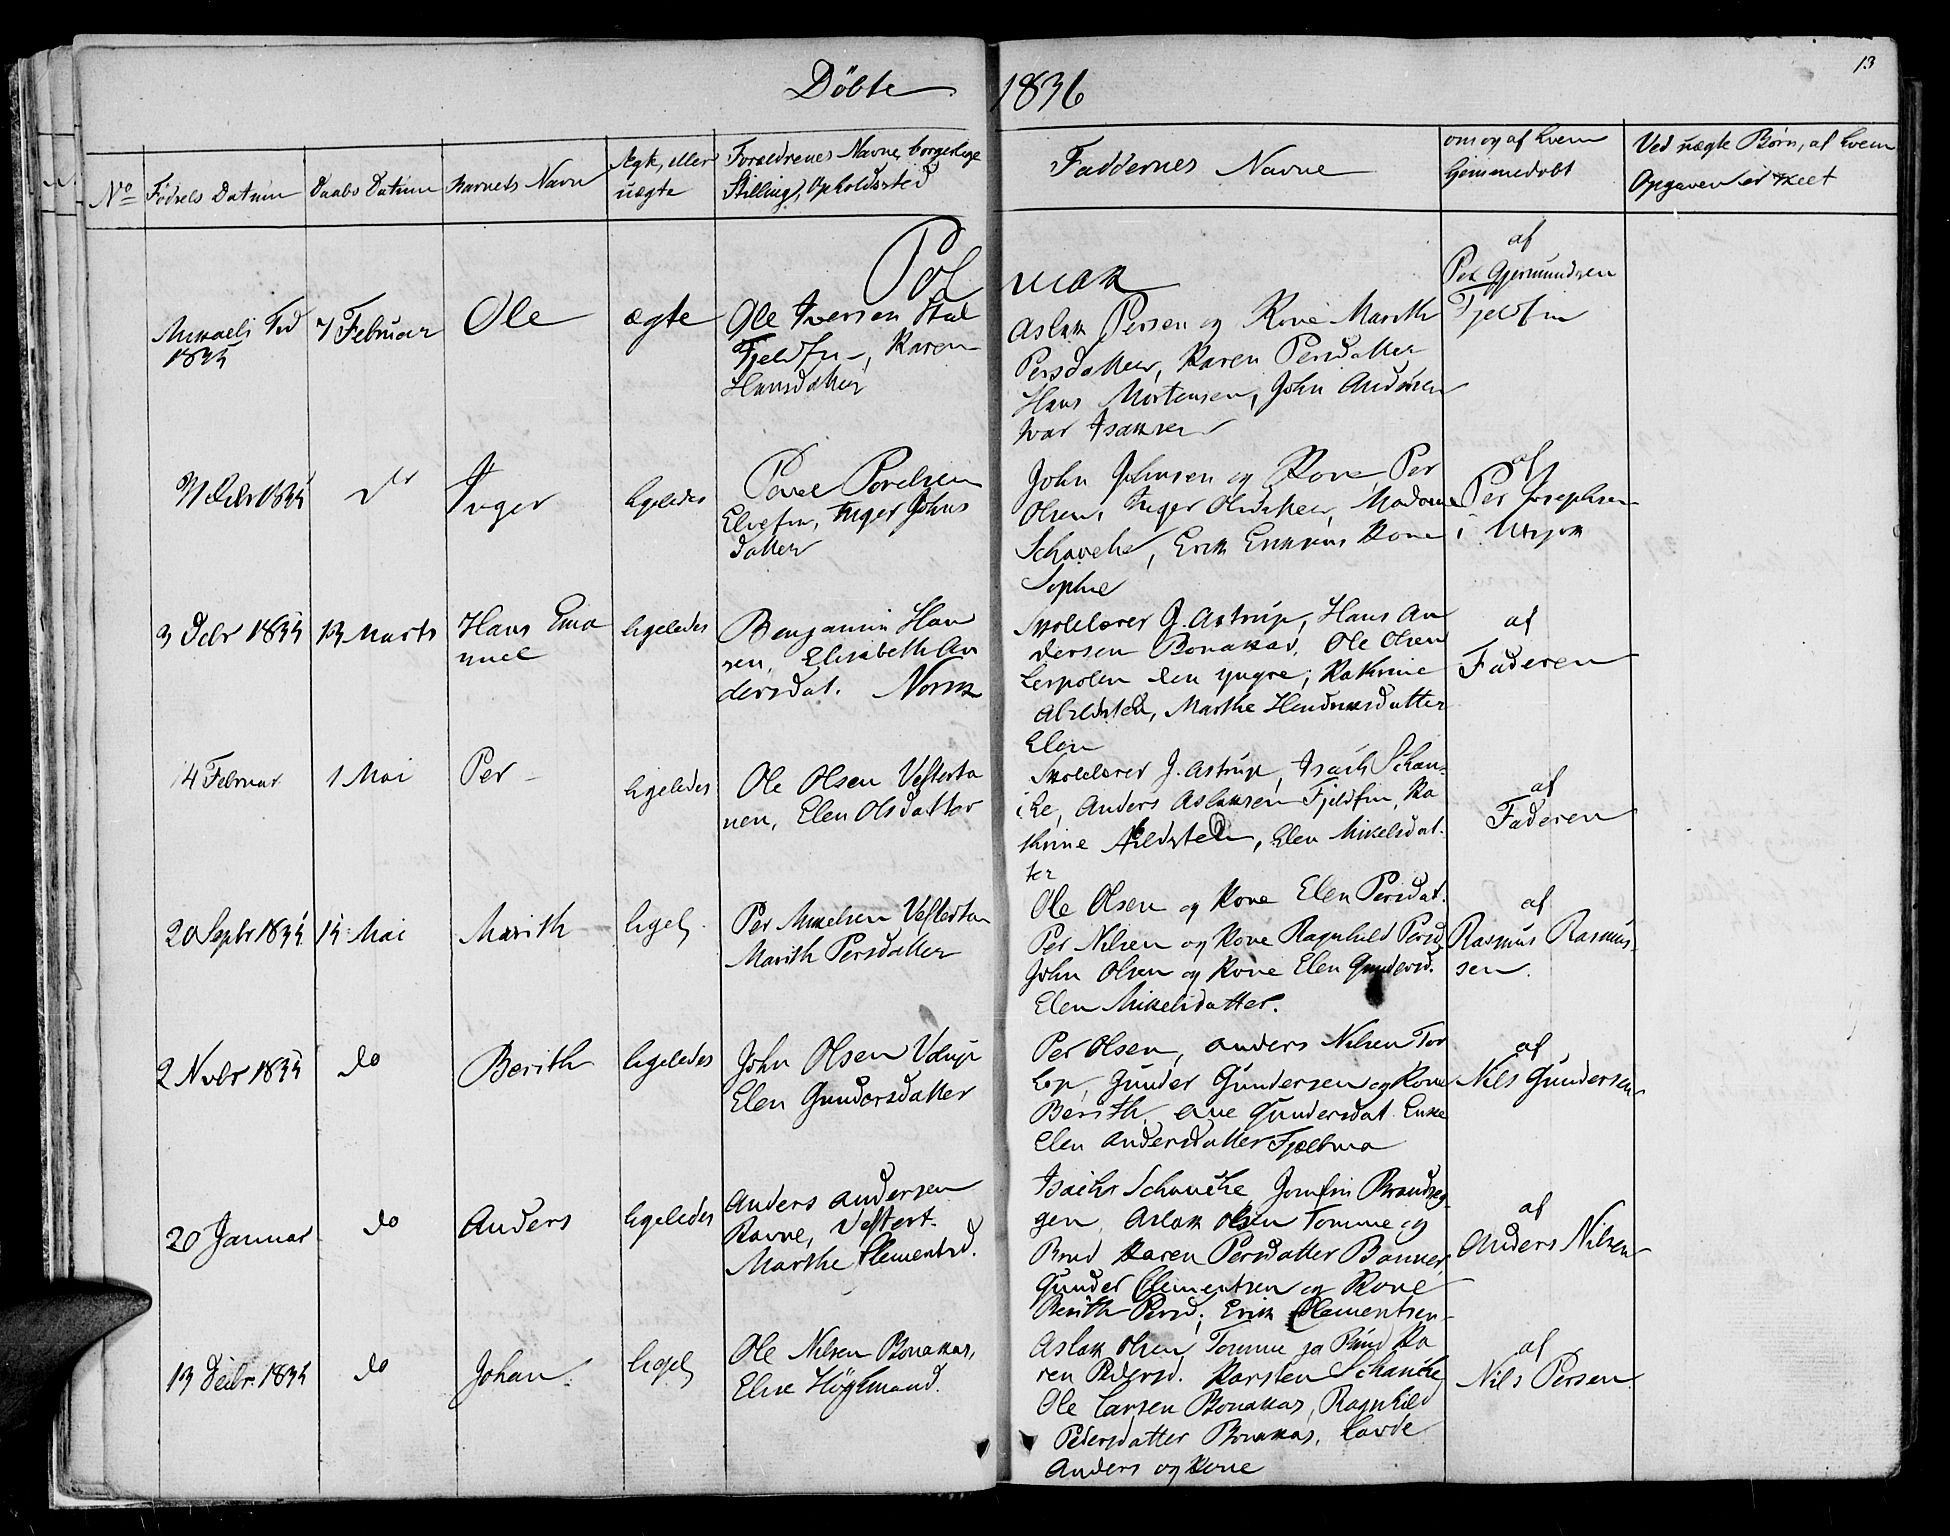 Döbte 1836
13
No
Födsels Datum
Daabs Datum
Barnets Navn
Ægte, eller
uægte
Forældrenes Navne, borgerlige
Stilling, Opholdssted
Faddernes Navne
om og af hvem
hjemmedøbt
Ved uægte Børn, af hvem
Opgaven er skeet
Pol mak
Mikaeli Tid
1835
7 Februar
Ole
ægte
Ole Iversen
Fjeldfin, Karen
Hansdatter
Aslak Persen og Kone Marith
Persdatter, Karen Persdatter
Hans Mortensen, John Andersen
Ivar Isaksen
af
Per Gjermundsen
Fjeldfin
Decbr 1835
do
Inger
ligeledes
Povel Povelsen
Elvefin, Inger Johns
datter
John Johnsen og Kone, Per
Olsen, Inger Olsdatter, Madame
Schanche, Erik Eriksens Kone
Sophie
af
Per Josephsen
i Utsjok
3 Decbr 1835
13 Marts
Hans Ema
nuel
ligeledes
Benjamin Han
sen, Elisabeth An
dersdat. Norsk
Skolelærer J. Astrup, Hans An
dersen Bonakas, Ole Olsen
Leirpolen den yngre, Kathrine
Abelsted, Marthe Hendriksdatter
Elen
af
Faderen
14 Februar
1 Mai
Per
ligeledes
Ole Olsen Vesterta
nen, Elen Olsdatter
Skolelærer J. Astrup, Isach Schan
che, Anders Aslaksen Fjeldfin, Ka
thrine Abelsted, Elen Mikelsdat
ter
af
Faderen
20 Septr 1835
15 Mai
Marith
ligel.
Per Mikelsen Vesterta
Marith Persdatter
Ole Olsen og Kone Elen Persdat.
Per Nilsen og Kone Ragnhild Persd
John Olsen og Kone Elen Gundersd.
Elen Mikelsdatter.
af
Rasmus Rasmus
sen.
2 Novbr 1835
do
Berith
ligeledes
John Olsen
Elen Gundersdatter
Per Olsen, Anders Nilsen Tor
hop, Gunder Gundersen og Kone
Berith, Ane Gundersdat. Enke
Elen Andersdatter Fjelbma
af
Nils Gundersen
20 Januar
do
Anders
ligeledes
Anders Andersen
Ravne, Vestert.
Marthe Clementsd.
Isach Schanche, Jomfru Brandseg
gen, Aslak Olsen Tomme og
Brud Karen Persdatter Banner,
Gunder Clementsen og Kone
Berith Persd., Erik Clementsen
af
Anders Nilsen
13 Decbr 1835
do
Johan
ligel.
Ole Nilsen Bonakas,
Elise Höghmand.
Aslak Olsen Tomme og Brud Ka
ren Pedersd. Karsten Schanche
Ole Larsen Bonakas, Ragnhild
Pedersdatter Bonakas,
Anders og Kone
af
Nils Persen